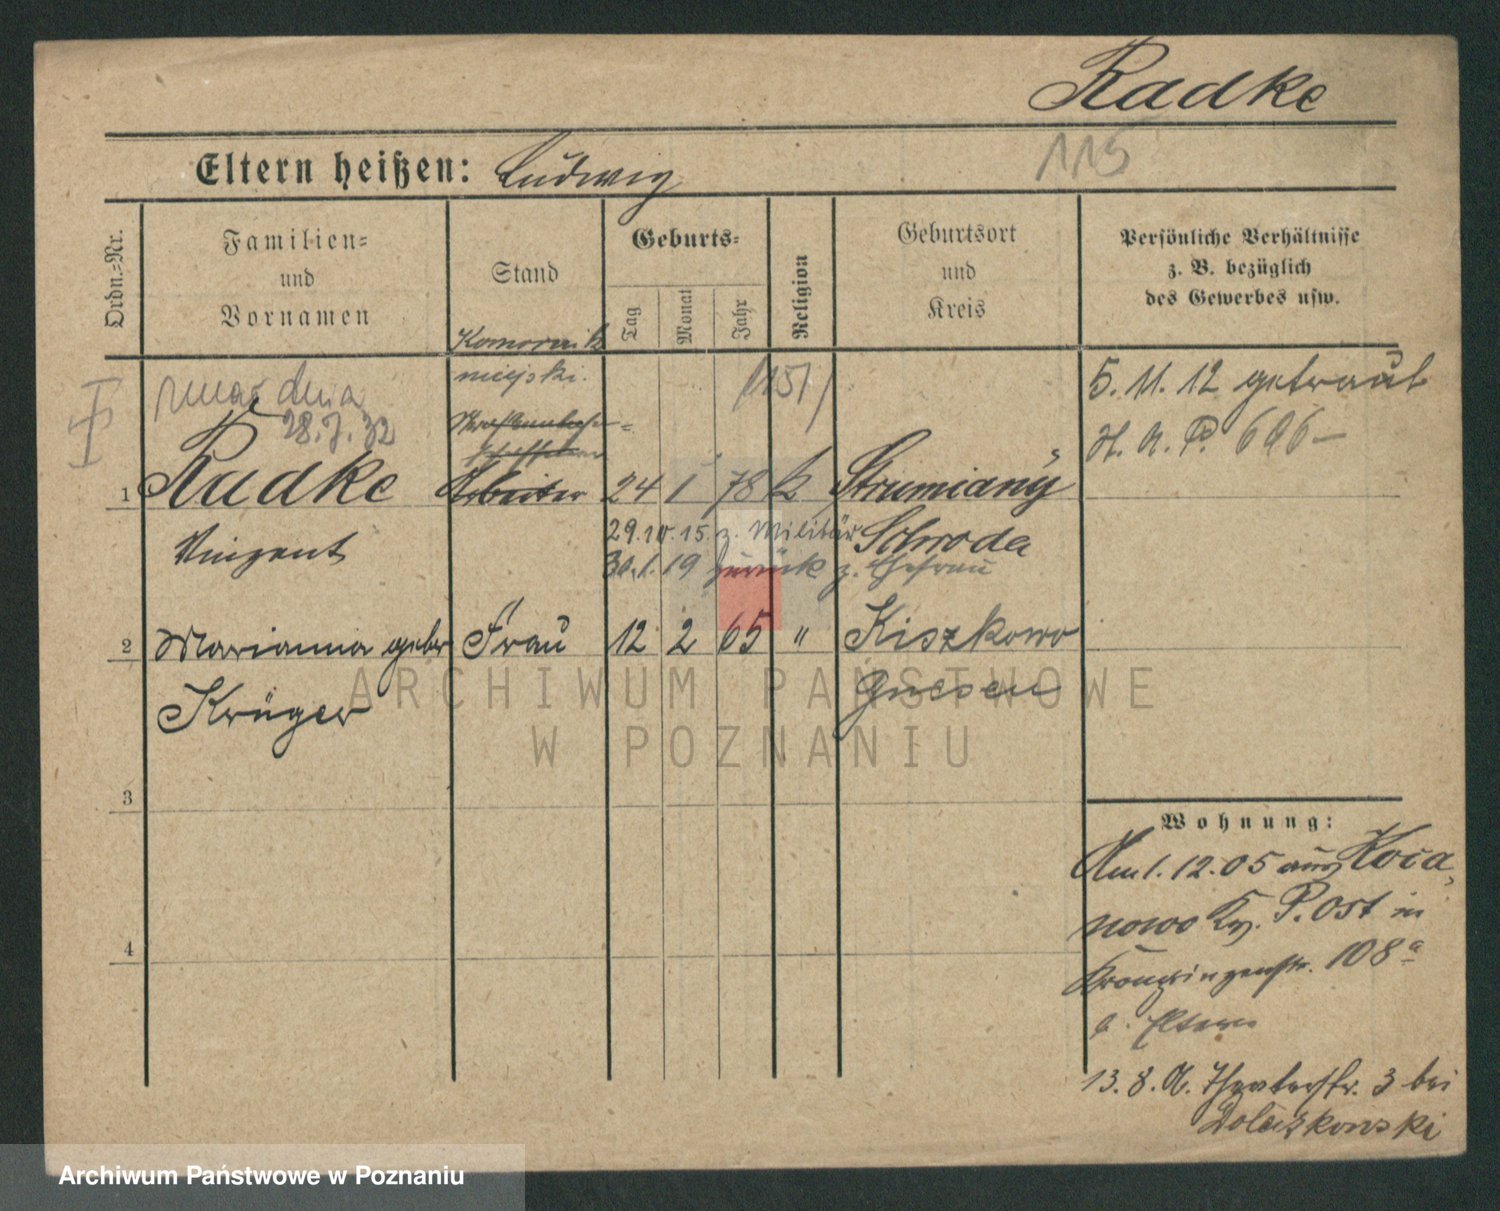 Radke
115
Eltern heißen: Ludwig
Ordn.-Nr.
Familien-
und
Vornamen
Stand
Geburts-
Tag
Monat
Jahr
Religion
Geburtsort
und
Kreis
Persönliche Verhältnisse
z. B. bezüglich
des Gewerbes usw.
Komornik
miejski.
zmarł dnia
28.7.32
(151)
5. 11. 12 getraut
H. A. P. 696—
1 Radke Arbeiter 24 1 78 k Strumiany
Vinzent
29.10.15. z. Militär Schroda
30.1.19 zurück z. Ehefrau
2 Marianna gebr Frau 12 2 65 " Kiszkowo
Krüger
Gnesen
3
4
Wohnung:
Am 1. 12. 05 aus Koca
nowo Kr. P. Ost in
Kronprinzenstr. 108a
b. Eltern
13. 8. 06. Theaterstr. 3 bei
ARCHIWUM PAŃSTWOWE
W POZNANIU
Archiwum Państwowe w Poznaniu